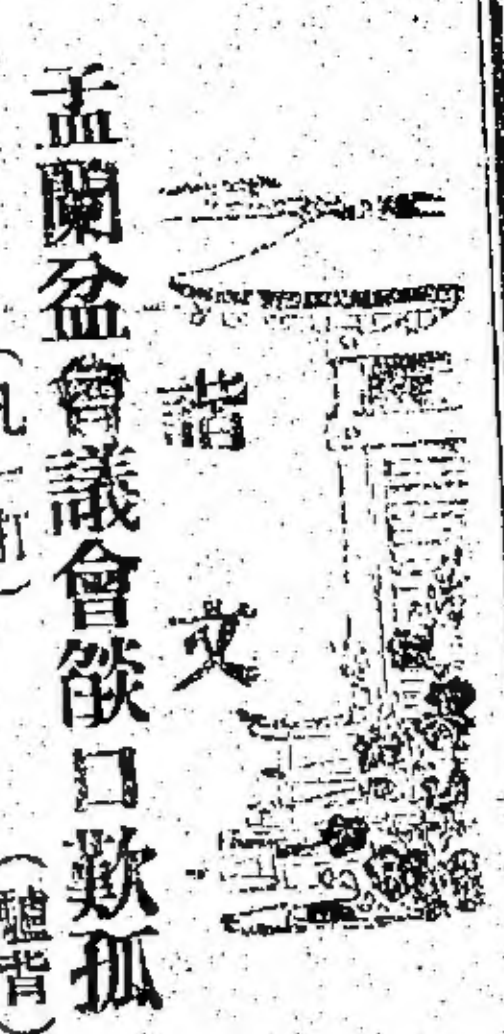 諧文
盂蘭盆會議會燄口歎孤
（驢背）